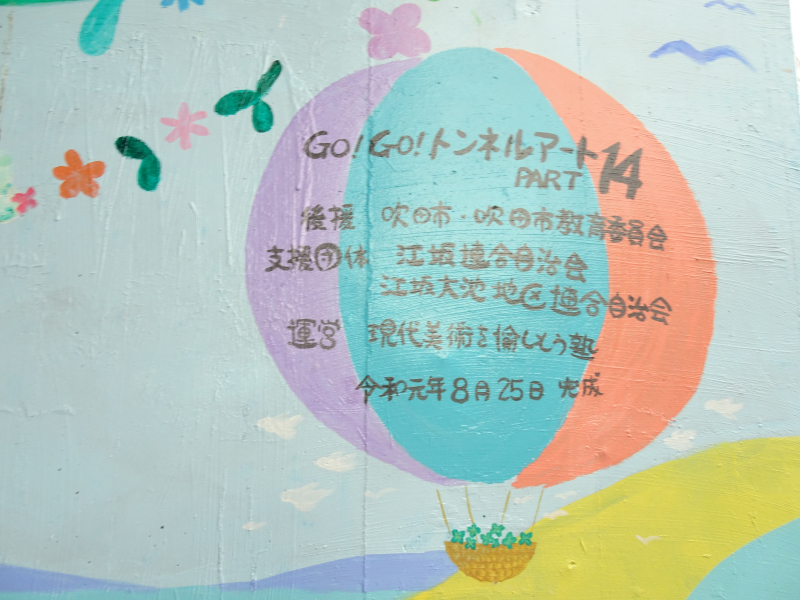 GO!GO!トンネルアート
PART 14
後援 吹田市・吹田市教育委員会
支援団体 江坂連合自治会
江坂大池地区連合自治会
運営 現代美術を愉しもう塾
令和元年8月25日 完成